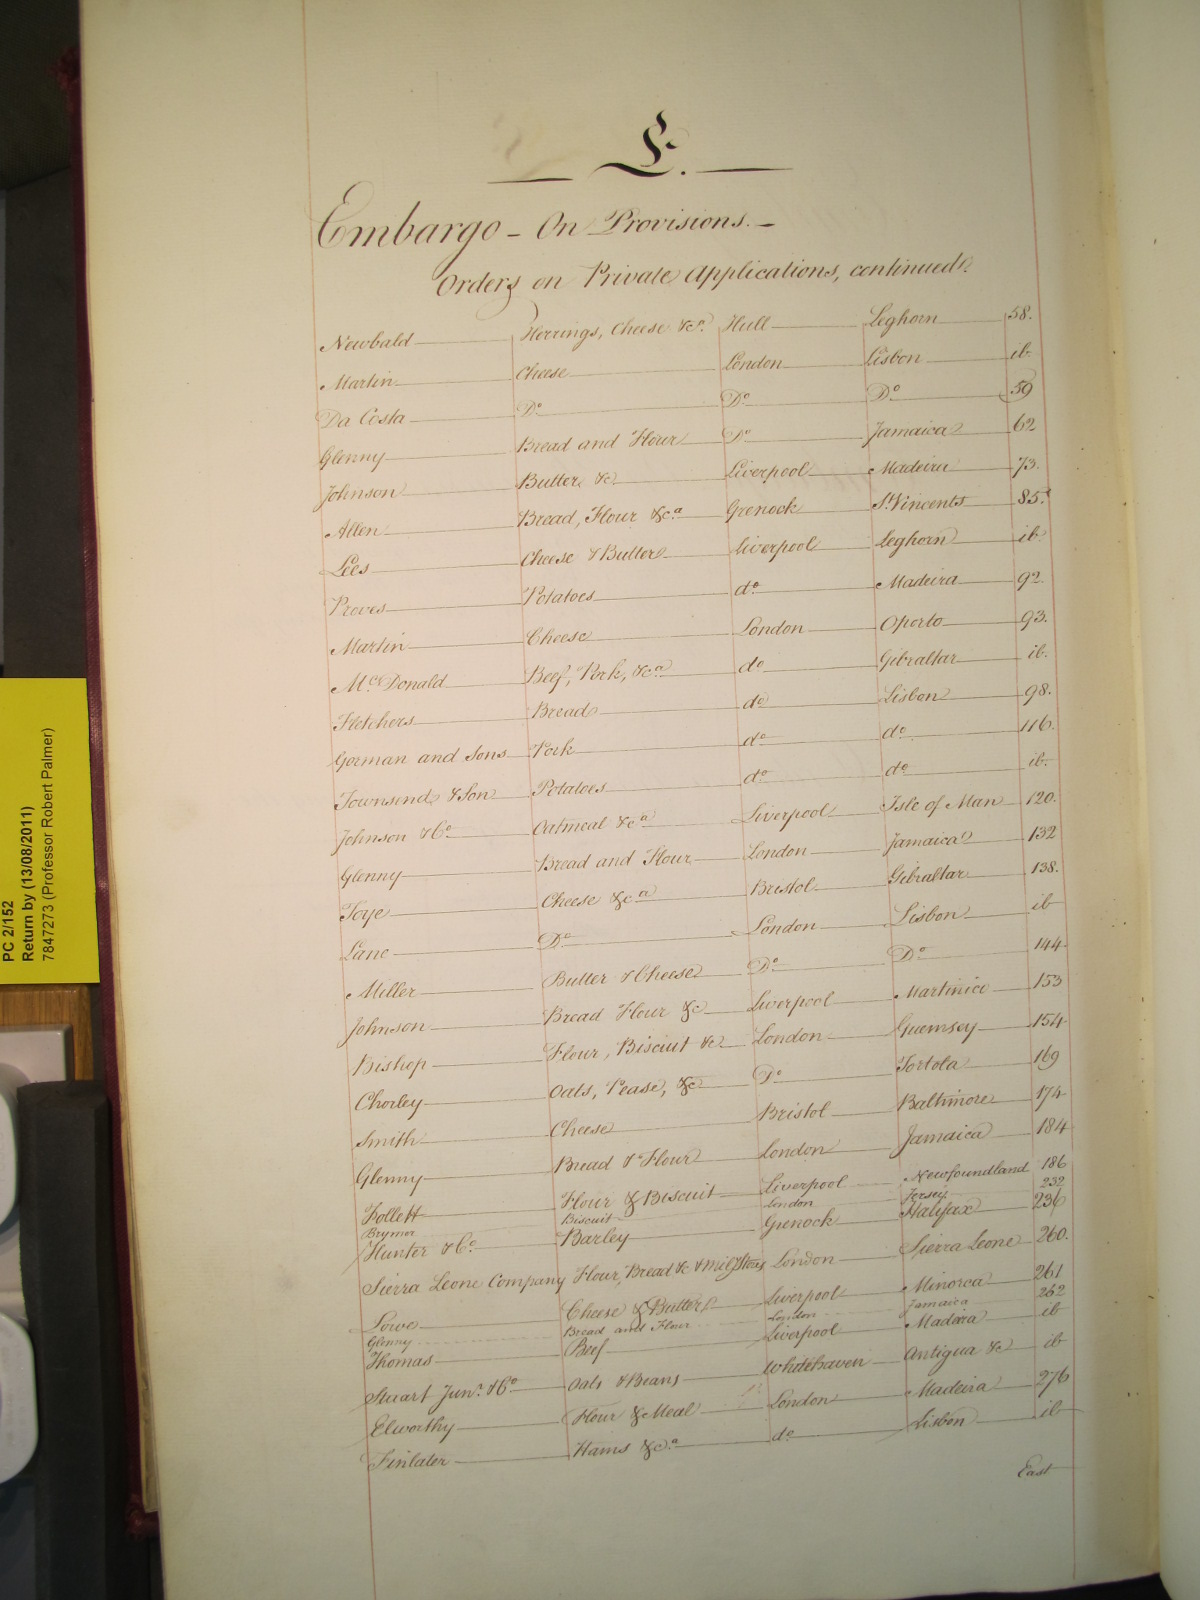 E.
Embargo - On Provisions. -
Orders on Private Applications, continued.
Newbald Herrings, Cheese &ca. Hull Leghorn 58.
Martin Cheese London Lisbon ib.
Da Costa Do Do Do 59
Glenny Bread and Flour Do Jamaica 62
Johnson Butter &c Liverpool Madeira 73.
Allen Bread, Flour &ca. Grenock St. Vincents 85.
Lees Cheese & Butter Liverpool Leghorn ib.
Proves Potatoes do Madeira 92.
Martin Cheese London Oporto 93.
McDonald Beef, Pork, &ca do Gibraltar ib.
Fletchers Bread do Lisbon 98.
Gorman and Sons Pork do do 116.
Townsend & Son Potatoes do do ib.
Johnson & Co Oatmeal &ca Liverpool Isle of Man 120.
Glenny Bread and Flour London Jamaica 132
Toye Cheese &ca Bristol Gibraltar 138.
Lane Do London Lisbon ib
Miller Butter & Cheese Do Do 144
Johnson Bread Flour &c Liverpool Martinico 153
Bishop Flour, Biscuit &c London Guernsey 154
Chorley Oats, Pease, &c Do Tortola 169
Smith Cheese Bristol Baltimore 174
Glenny Bread & Flour London Jamaica 184
Follett Flour & Biscuit Liverpool Newfoundland 186
Brymer Biscuit London Jersey 232
Hunter & Co. Barley Grenock Halifax 236
Sierra Leone Company Flour, Bread &c & Mily Stores London Sierra Leone 260.
Lowe Cheese & Butter Liverpool Minorca 261
Glenny Bread and Flour London Jamaica 262
Thomas Beef Liverpool Madeira ib
Stuart Junr. & Co Oats & Beans Whitehaven Antigua &c ib
Elworthy Flour & Meal London Madeira 276
Finlater Hams &ca. do Lisbon ib
East
PC 2/152
Return by (13/08/2011)
7847273 (Professor Robert Palmer)